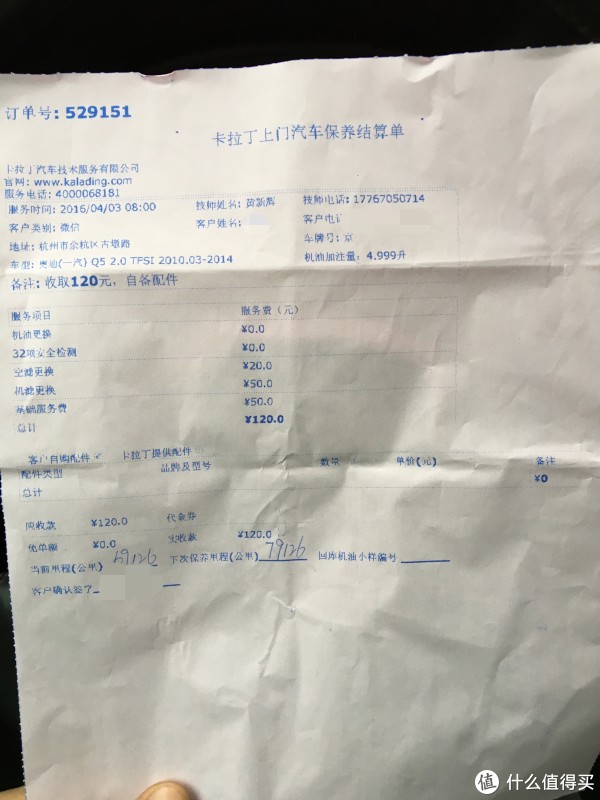 订单号: 529151
卡拉丁上门汽车保养结算单
卡拉丁汽车技术服务有限公司
官网: www.kalading.com
服务电话: 4000068181
服务时间: 2016/04/03 08:00 技师姓名: 黄新辉 技师电话: 17767050714
客户类别: 微信 客户姓名: 客户电话
地址: 杭州市余杭区古墩路 车牌号: 京
车型: 奥迪(一汽) Q5 2.0 TFSI 2010.03-2014 机油加注量: 4.999升
备注: 收取120元, 自备配件
服务项目 服务费 (元)
机油更换 ¥0.0
32项安全检测 ¥0.0
空滤更换 ¥20.0
机滤更换 ¥50.0
基础服务费 ¥50.0
总计 ¥120.0
客户自购配件 ✓ 卡拉丁提供配件
配件类型 品牌及型号 数量 单价(元) 备注
总计 ¥0
应收款 ¥120.0 代金券
免单额 ¥0.0 实收款 ¥120.0
当前里程(公里) 69126 下次保养里程(公里) 79126 回库机油小样编号
客户确认签字
值 什么值得买